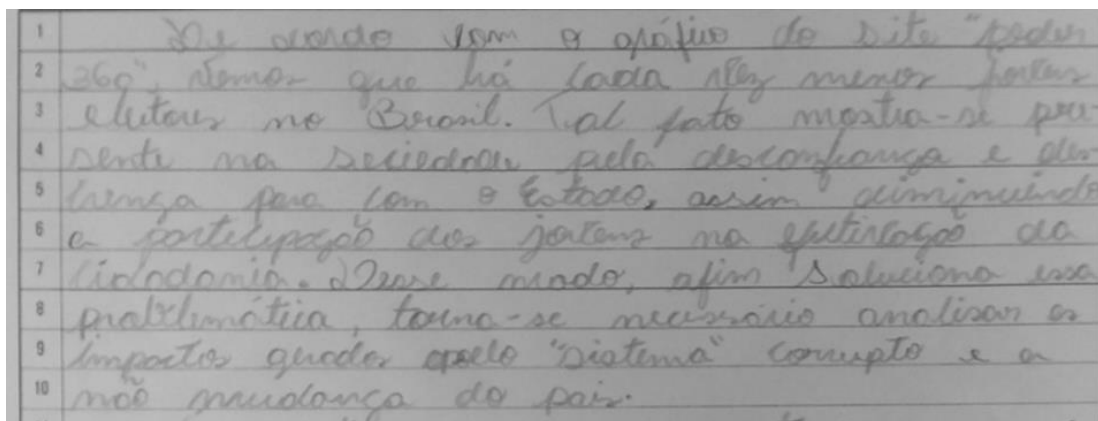 1 De acordo com o gráfico do site "poder
2 360", vemos que há cada vez menos jovens
3 eleitores no Brasil. Tal fato mostra-se pre-
4 sente na sociedade pela desconfiança e des-
5 crença para com o Estado, assim diminuindo
6 a participação dos jovens na efetivação da
7 cidadania. Desse modo, afim soluciona essa
8 problemática, torna-se necessário analisar os
9 impactos gerados pelo "sistema" corrupto e a
10 não mudança do país.